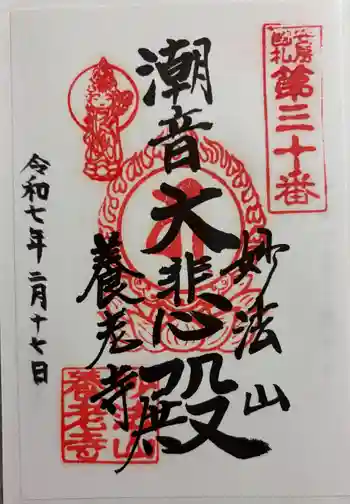 安房国札
第三十番
潮音大悲殿
妙法山
養老寺
令和七年二月十七日
養老寺